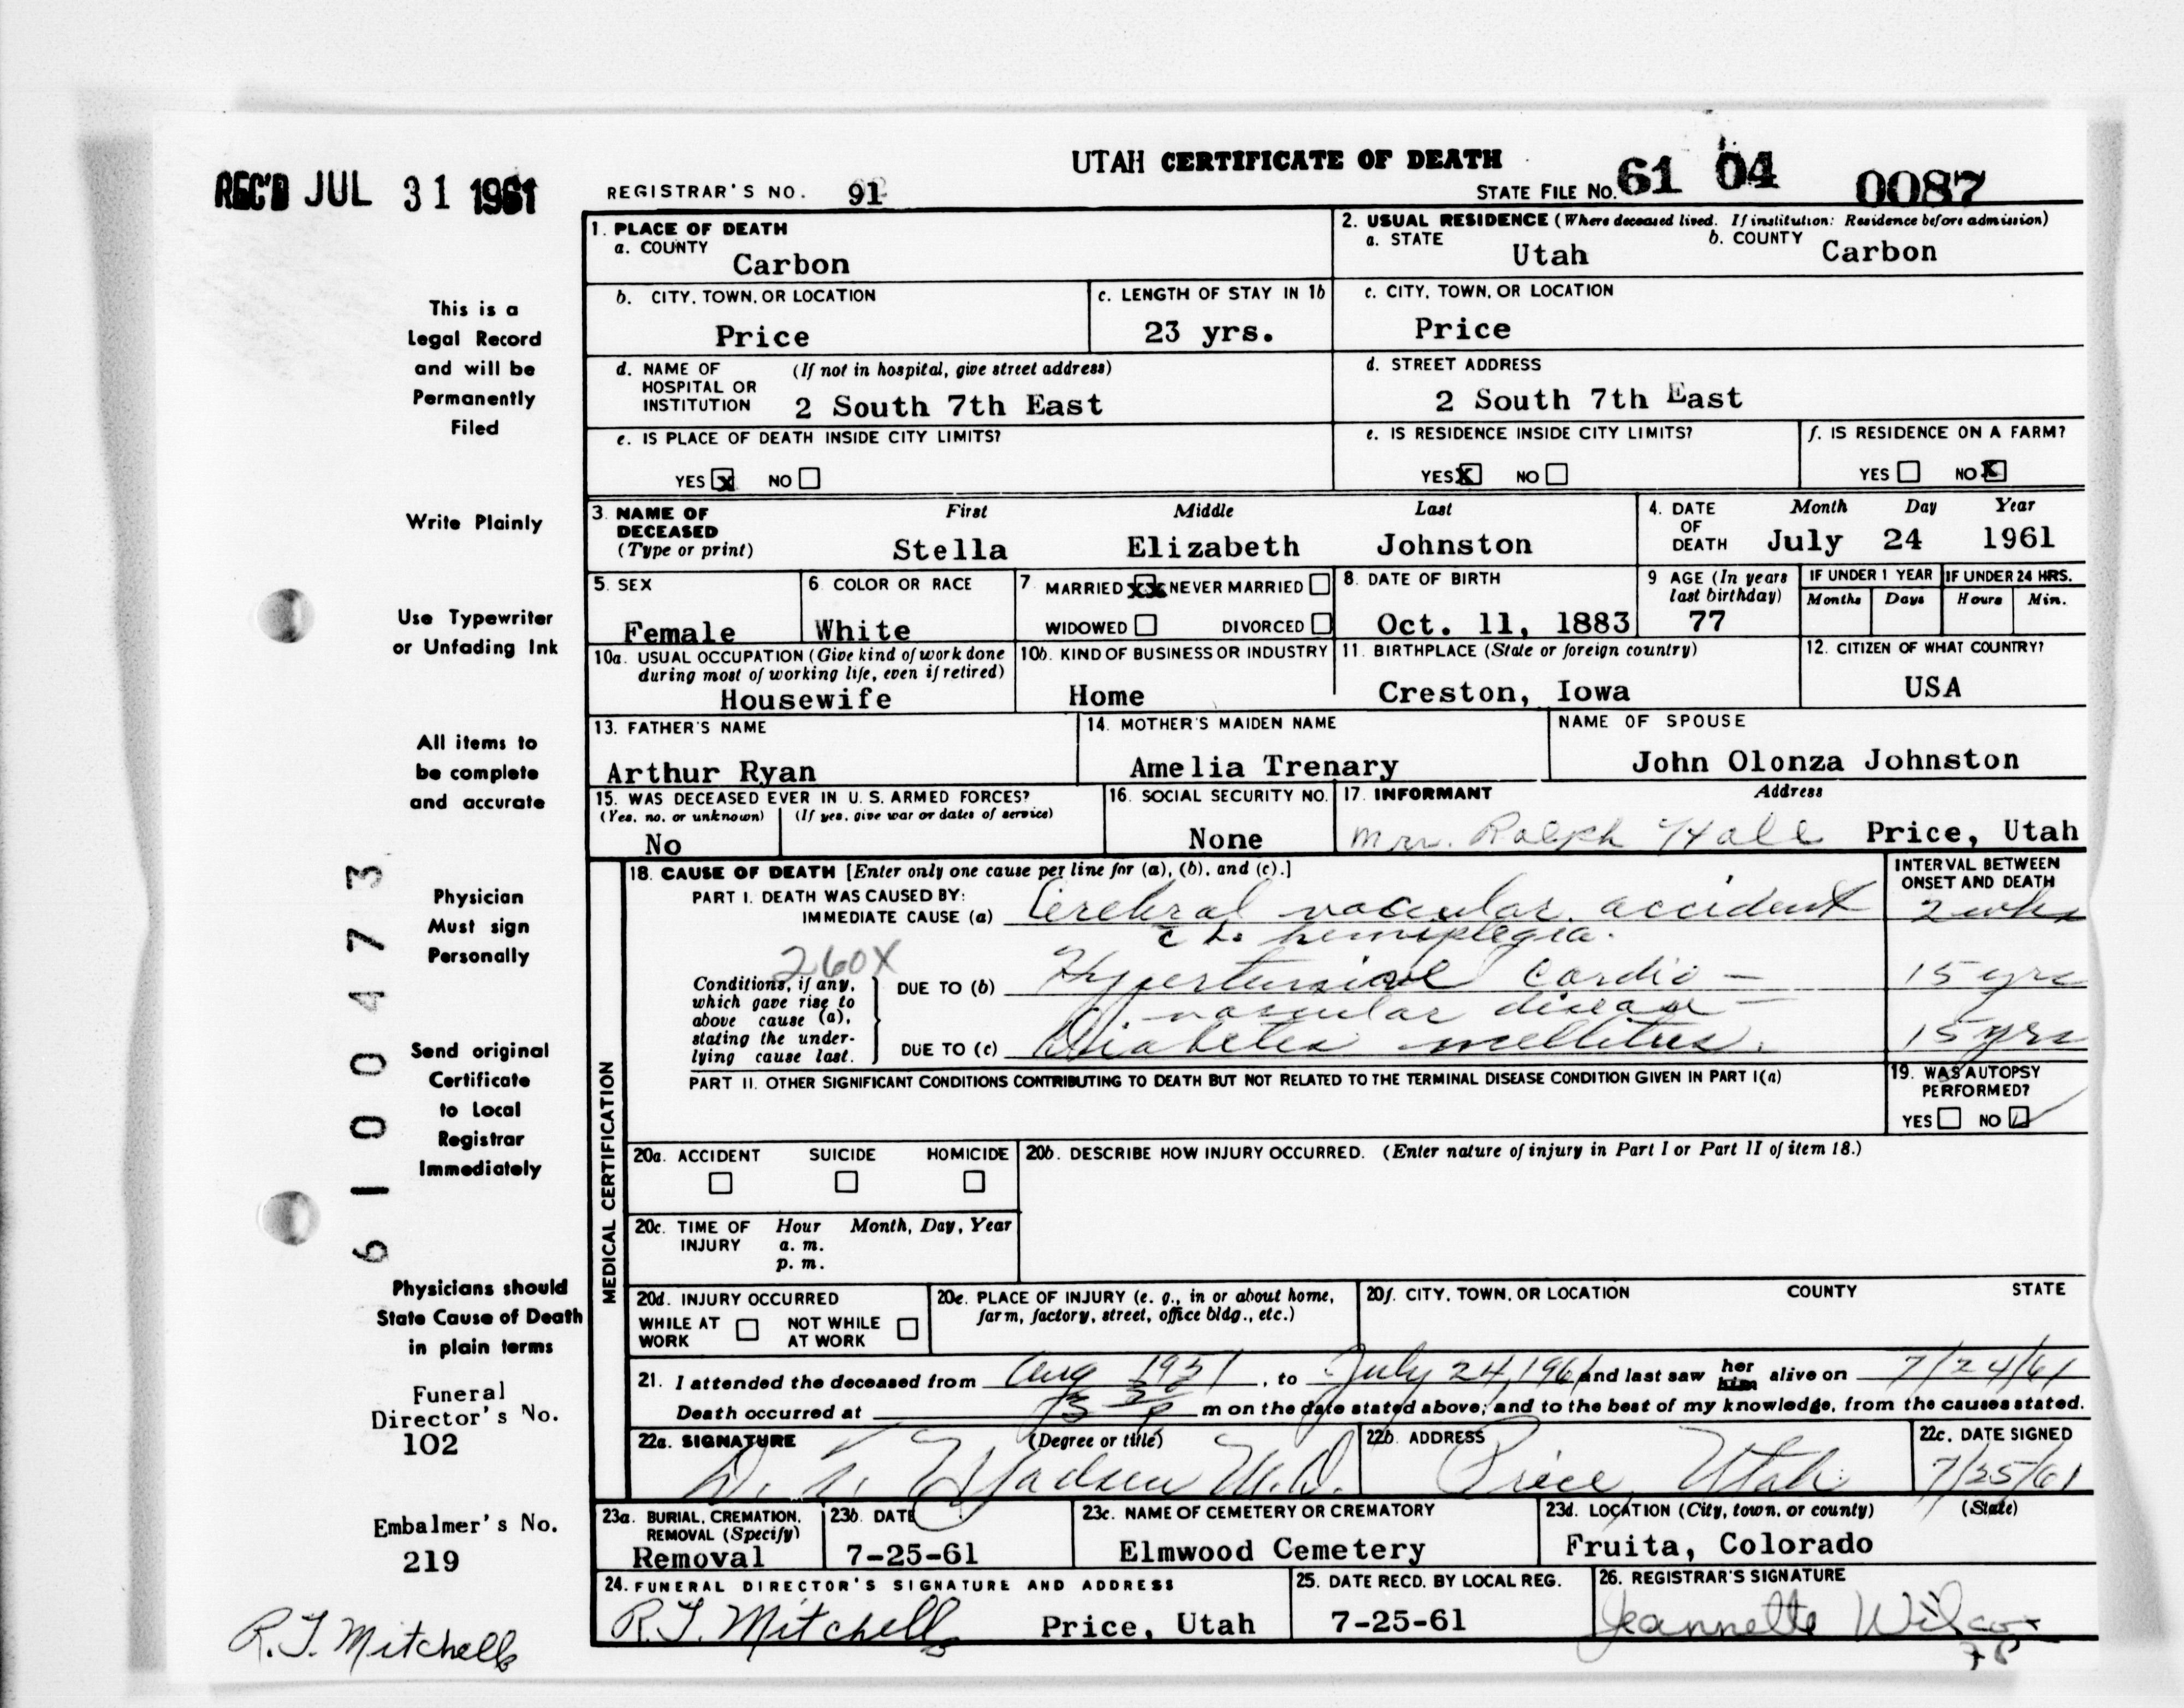 UTAH CERTIFICATE OF DEATH
REC'D JUL 31 1961
REGISTRAR'S NO. 91
STATE FILE NO. 61 04 0087
1. PLACE OF DEATH
a. COUNTY
Carbon
2. USUAL RESIDENCE (Where deceased lived. If institution: Residence before admission)
a. STATE Utah b. COUNTY Carbon
b. CITY, TOWN, OR LOCATION
Price
c. LENGTH OF STAY IN 1b
23 yrs.
c. CITY, TOWN, OR LOCATION
Price
d. NAME OF HOSPITAL OR INSTITUTION (If not in hospital, give street address)
2 South 7th East
d. STREET ADDRESS
2 South 7th East
e. IS PLACE OF DEATH INSIDE CITY LIMITS?
YES X NO
e. IS RESIDENCE INSIDE CITY LIMITS?
YES X NO
f. IS RESIDENCE ON A FARM?
YES NO X
3. NAME OF DECEASED (Type or print)
First Middle Last
Stella Elizabeth Johnston
4. DATE OF DEATH
Month Day Year
July 24 1961
5. SEX
Female
6. COLOR OR RACE
White
7. MARRIED XX NEVER MARRIED
WIDOWED DIVORCED
8. DATE OF BIRTH
Oct. 11, 1883
9 AGE (In years last birthday)
77
IF UNDER 1 YEAR
Months Days
IF UNDER 24 HRS.
Hours Min.
10a. USUAL OCCUPATION (Give kind of work done during most of working life, even if retired)
Housewife
10b. KIND OF BUSINESS OR INDUSTRY
Home
11. BIRTHPLACE (State or foreign country)
Creston, Iowa
12. CITIZEN OF WHAT COUNTRY?
USA
13. FATHER'S NAME
Arthur Ryan
14. MOTHER'S MAIDEN NAME
Amelia Trenary
NAME OF SPOUSE
John Olonza Johnston
15. WAS DECEASED EVER IN U. S. ARMED FORCES?
(Yes, no, or unknown) (If yes, give war or dates of service)
No
16. SOCIAL SECURITY NO.
None
17. INFORMANT Address
Mrs. Ralph Hall Price, Utah
18. CAUSE OF DEATH [Enter only one cause per line for (a), (b), and (c).]
INTERVAL BETWEEN ONSET AND DEATH
PART I. DEATH WAS CAUSED BY:
IMMEDIATE CAUSE (a) Cerebral vascular accident 2 wks
c L. hemiplegia.
260X
Conditions, if any, which gave rise to above cause (a), stating the underlying cause last.
DUE TO (b) Hypertensive cardio- 15 yrs
vascular disease
DUE TO (c) Diabetes mellitus. 15 yrs
PART II. OTHER SIGNIFICANT CONDITIONS CONTRIBUTING TO DEATH BUT NOT RELATED TO THE TERMINAL DISEASE CONDITION GIVEN IN PART I(a)
19. WAS AUTOPSY PERFORMED?
YES NO
MEDICAL CERTIFICATION
20a. ACCIDENT SUICIDE HOMICIDE
20b. DESCRIBE HOW INJURY OCCURRED. (Enter nature of injury in Part I or Part II of item 18.)
20c. TIME OF INJURY Hour Month, Day, Year
a. m.
p. m.
20d. INJURY OCCURRED
WHILE AT WORK NOT WHILE AT WORK
20e. PLACE OF INJURY (e. g., in or about home, farm, factory, street, office bldg., etc.)
20f. CITY, TOWN, OR LOCATION COUNTY STATE
21. I attended the deceased from Aug 1951, to July 24, 1961 and last saw her him alive on 7/24/61
Death occurred at m on the date stated above; and to the best of my knowledge, from the causes stated.
22a. SIGNATURE (Degree or title)
M.D.
22b. ADDRESS
Price, Utah
22c. DATE SIGNED
7/25/61
23a. BURIAL, CREMATION, REMOVAL (Specify)
Removal
23b. DATE
7-25-61
23c. NAME OF CEMETERY OR CREMATORY
Elmwood Cemetery
23d. LOCATION (City, town, or county) (State)
Fruita, Colorado
24. FUNERAL DIRECTOR'S SIGNATURE AND ADDRESS
R.J. Mitchell Price, Utah
25. DATE RECD. BY LOCAL REG.
7-25-61
26. REGISTRAR'S SIGNATURE
Jeannette Wilcox
This is a
Legal Record
and will be
Permanently
Filed
Write Plainly
Use Typewriter
or Unfading Ink
All items to
be complete
and accurate
Physician
Must sign
Personally
Send original
Certificate
to Local
Registrar
Immediately
Physicians should
State Cause of Death
in plain terms
Funeral
Director's No.
102
Embalmer's No.
219
R.J. Mitchell
6100473